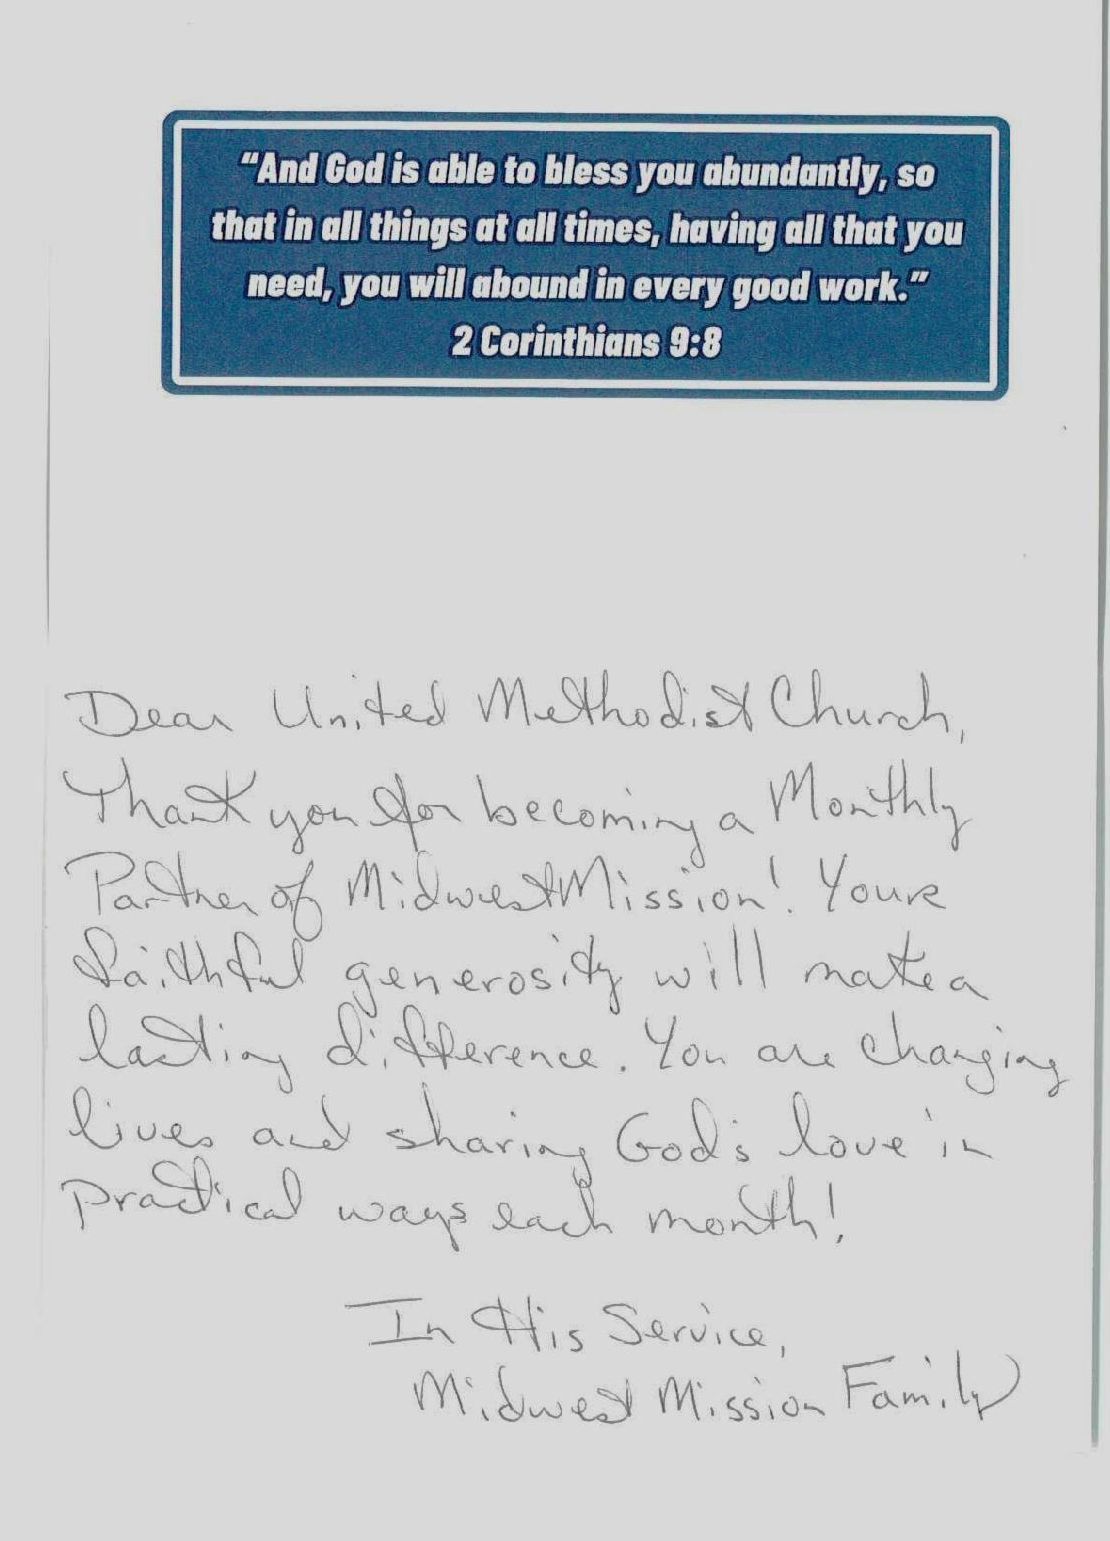 “And God is able to bless you abundantly, so
that in all things at all times, having all that you
need, you will abound in every good work.”
2 Corinthians 9:8
Dear United Methodist Church,
Thank you for becoming a Monthly
Partner of Midwest Mission! Youre
faithful generosity will make a
lasting difference. You are changing
lives and sharing God's love in
practical ways each month!
In His Service,
Midwest Mission Family